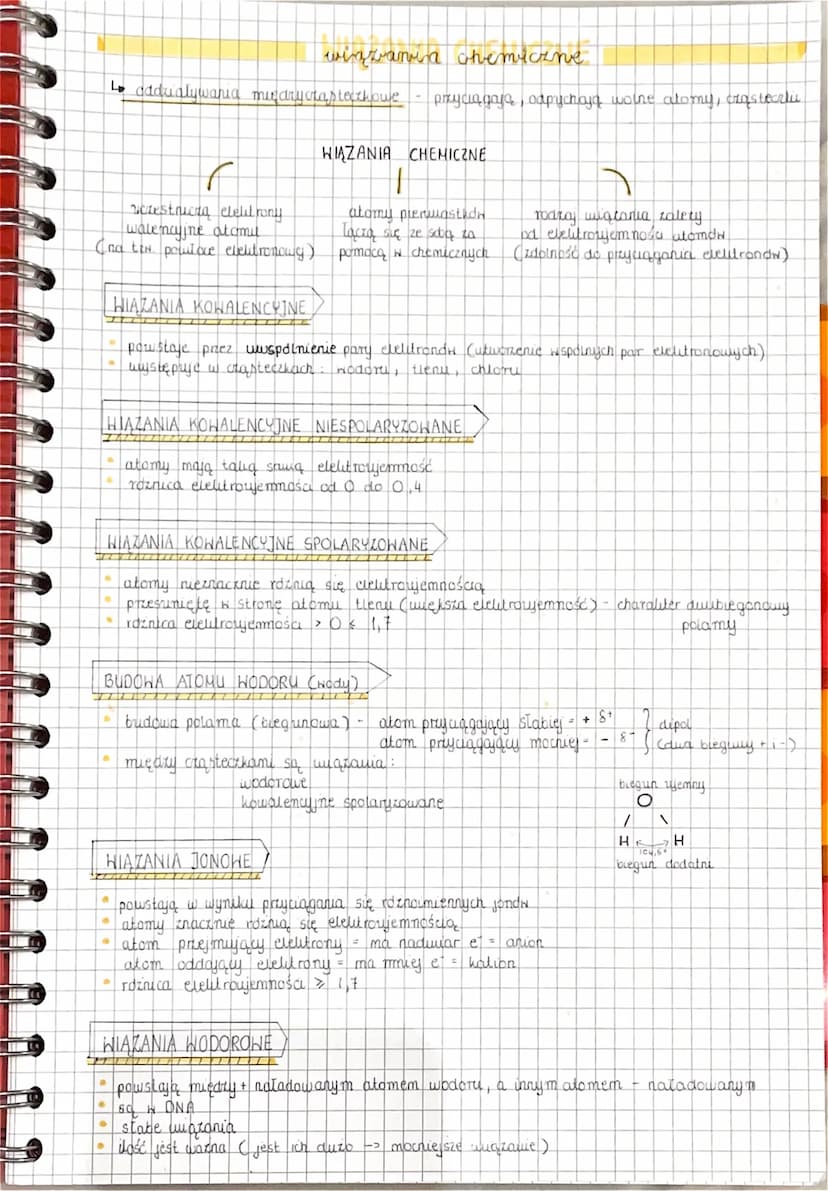 wiązania chemiczne
↳ oddziaływania międzycząsteczkowe - przyciągają, odpychają wolne atomy, cząsteczki
WIĄZANIA CHEMICZNE
uczestniczą elektrony
walencyjne atomu
(na tzw. powłoce elektronowej)
atomy pierwiastków
łączą się ze sobą za
pomocą w chemicznych
rodzaj wiązania zależy
od elektroujemności atomów
(zdolność do przyciągania elektronów)
WIĄZANIA KOWALENCYJNE
• powstaje przez uwspólnienie pary elektronów (utworzenie wspólnych par elektronowych)
• występuje w cząsteczkach: wodoru, tlenu, chloru
WIĄZANIA KOWALENCYJNE NIESPOLARYZOWANE
• atomy mają taką samą elektroujemność
• różnica elektroujemności od 0 do 0,4
WIĄZANIA KOWALENCYJNE SPOLARYZOWANE
• atomy nieznacznie różnią się elektroujemnością
• przesunięte w stronę atomu tlenu (większa elektroujemność) - charakter dwubiegonowy
polarny
• różnica elektroujemności > 0 ≤ 1,7
BUDOWA ATOMU WODORU (wody)
• budowa polarna (biegunowa) - atom przyciągający słabiej = + δ+
atom przyciągający mocniej = - δ-
} dipol
(dwa bieguny + i -)
• między cząsteczkami są wiązania:
wodorowe
kowalencyjne spolaryzowane
biegun ujemny
O
H H
104,5°
biegun dodatni
WIĄZANIA JONOWE
• powstają w wyniku przyciągania się różnoimiennych jonów
• atomy znacznie różnią się elektroujemnością
• atom przejmujący elektrony = ma nadmiar e⁻ = anion
atom oddający elektrony = ma mniej e⁻ = kation
• różnica elektroujemności ≥ 1,7
WIĄZANIA WODOROWE
• powstają między + naładowanym atomem wodoru, a innym atomem - naładowanym
• są w DNA
• słabe wiązania
• ilość jest ważna (jest ich dużo -> mocniejsze wiązanie)